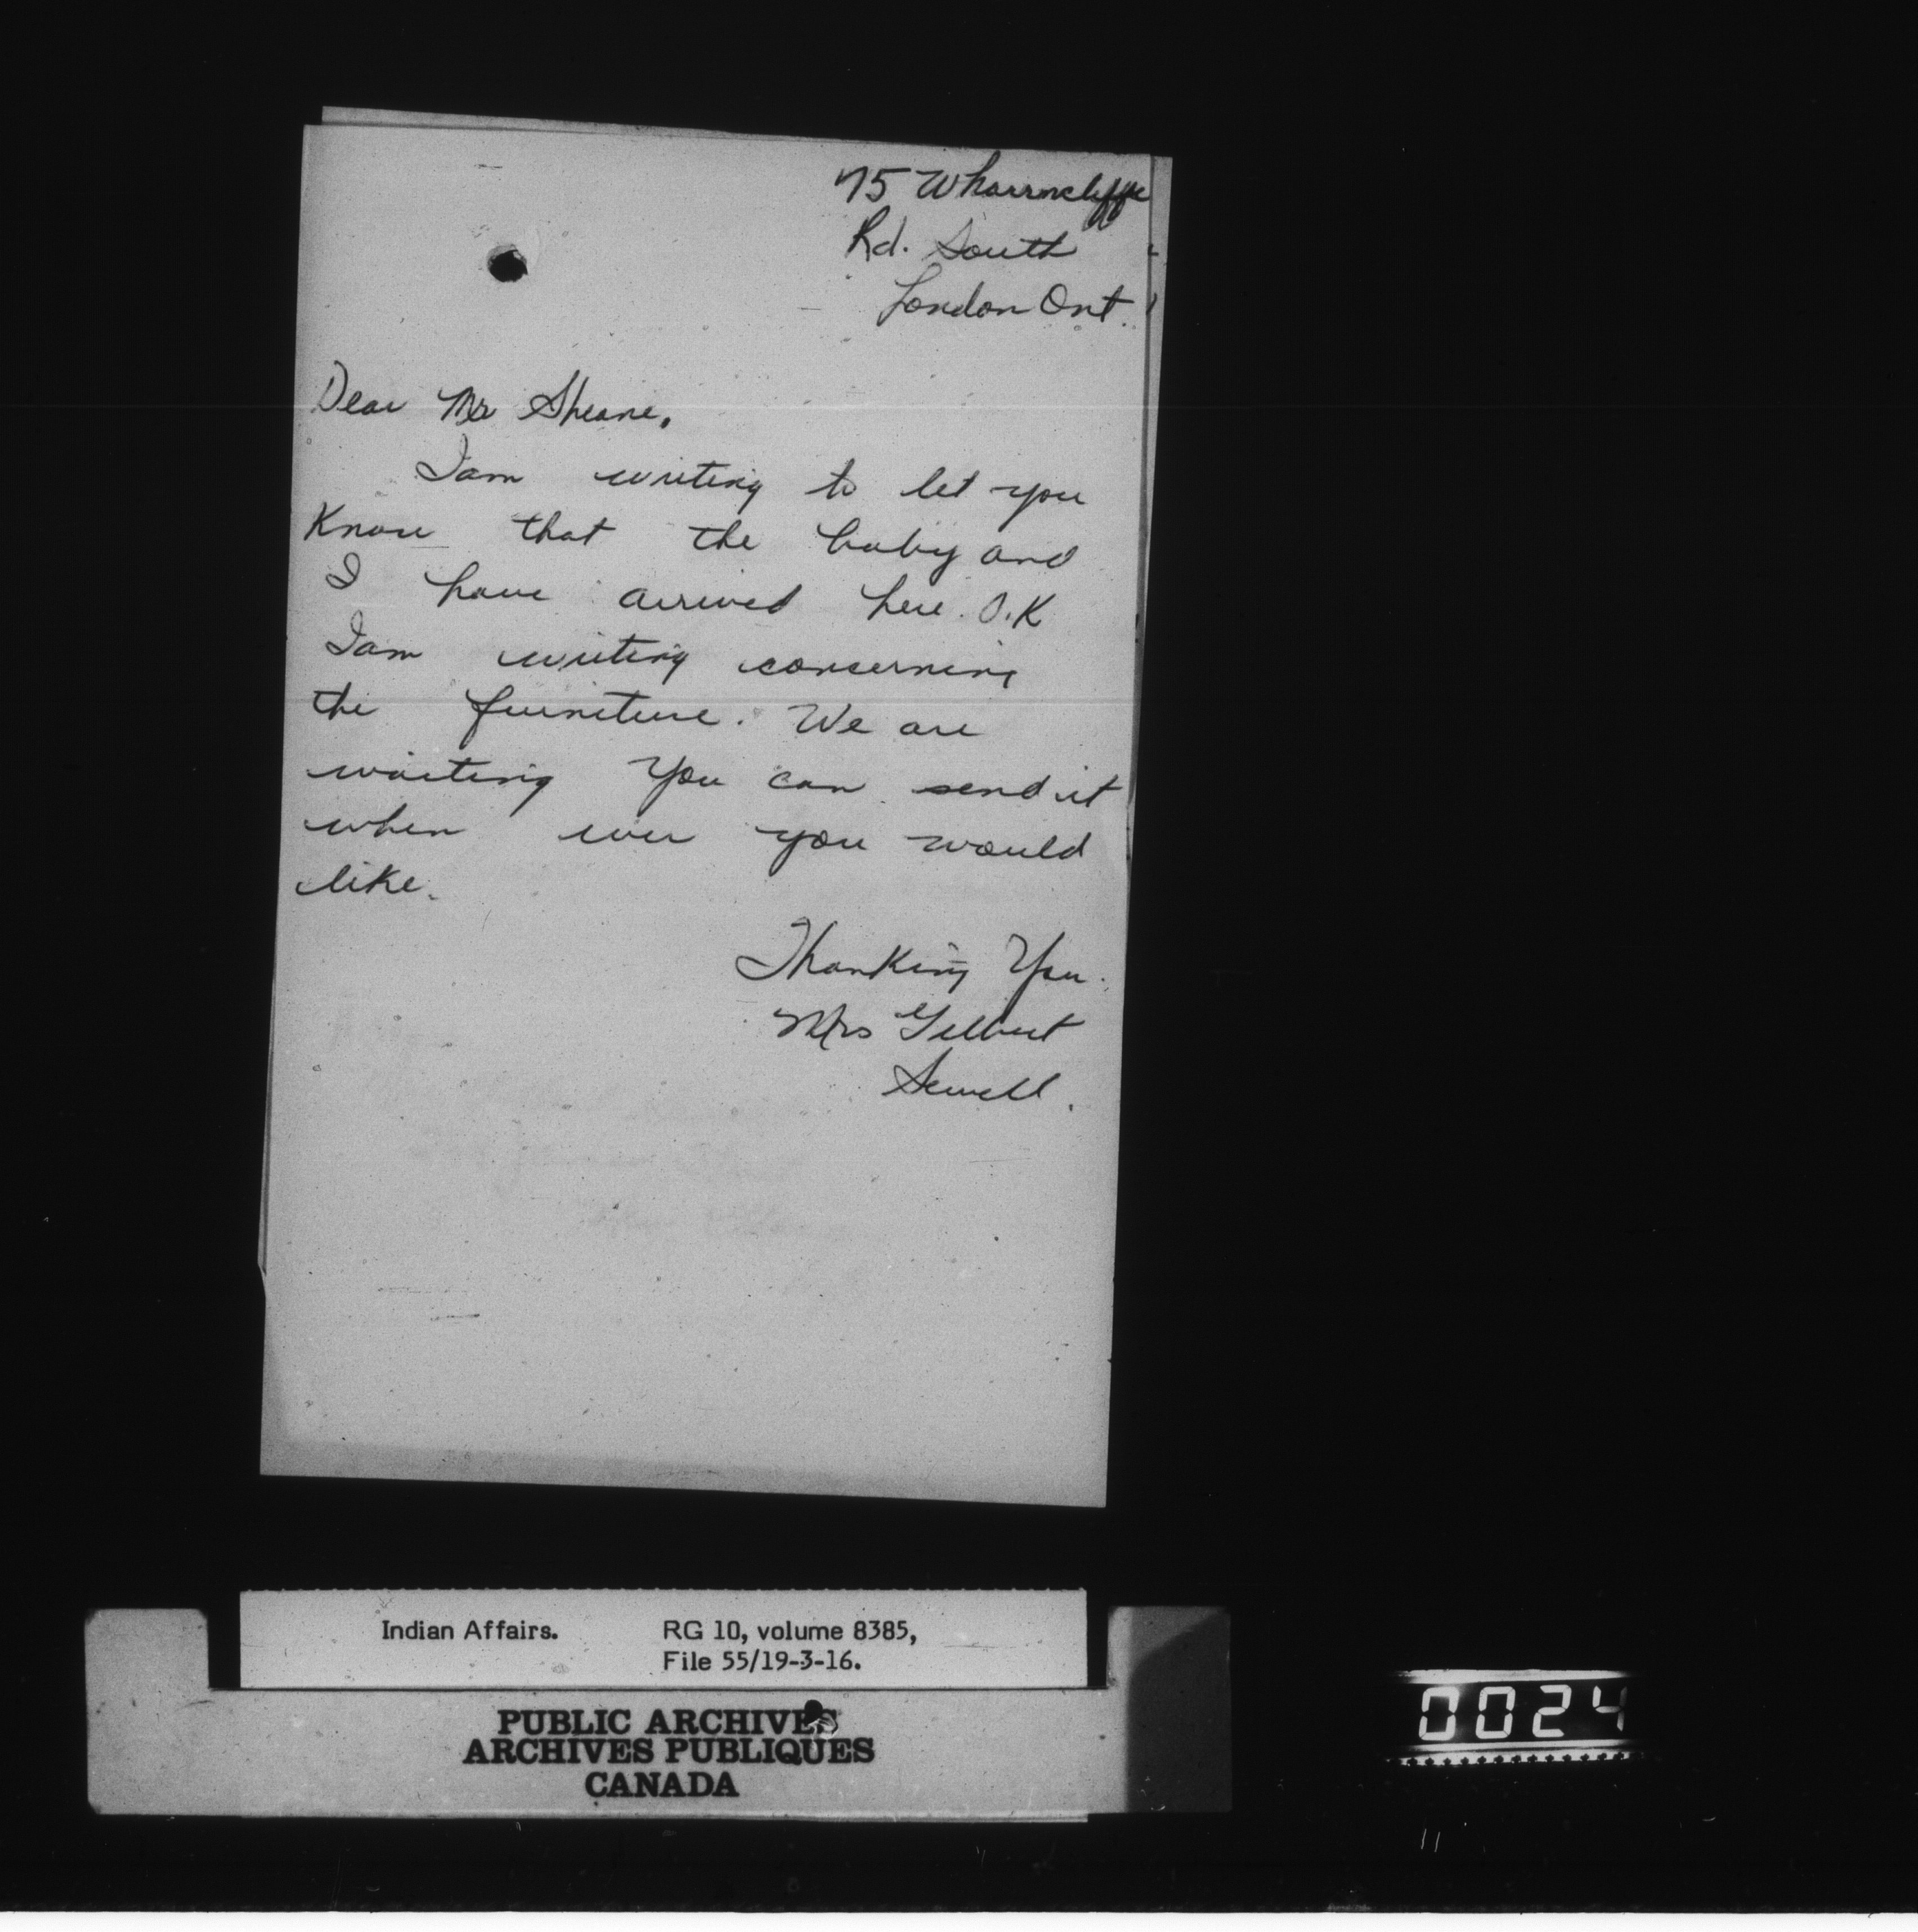 75 Wharrncliffe
Rd. South
London Ont.
Dear Mr Sheane,
I am writing to let you
Know that the baby and
I have arrived here. O.K
I am writing concerning
the furniture. We are
waiting You can send it
when ever you would
like.
Thanking You.
Mrs Gilbert
Sewell.
Indian Affairs. RG 10, volume 8385,
File 55/19-3-16.
PUBLIC ARCHIVES
ARCHIVES PUBLIQUES
CANADA
0024